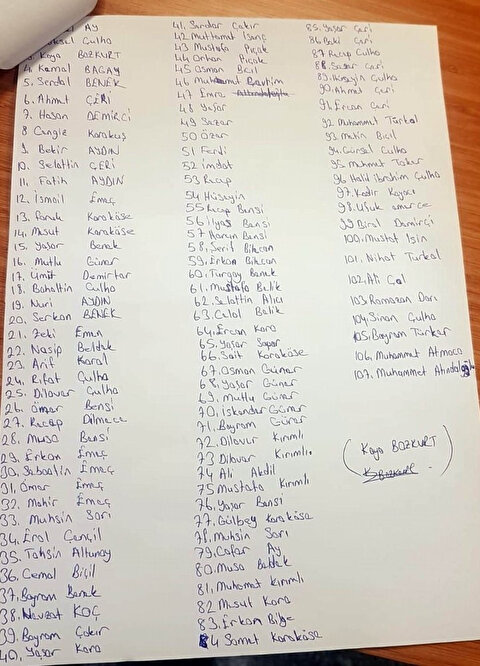 AY
Culha
Kaya BOZKURT
4. Kemal BAGAY
5. Serdal BENEK
6. Ahmet ÇERİ
7. Hasan DEMİRCİ
8 Cengiz Karakuş
9. Bekir AYDIN
10. Selattin ÇERİ
11. Fatih AYDIN
12. İsmail Emeç
13. Faruk Karaköse
14. Mesut Karaköse
15. Yaşar Benek
16. Mutlu Güner
17. Ümit Demirtar
18. Bahattin Culha
19. Nuri AYDIN
20. Serkan BENEK
21. Zeki Emen
22. Nasip Beldek
23. Arif Karal
24. Rıfat Çulha
25. Dilaver Çulha
26. Ömer Bensi
27. Recep Dilmece
28. Musa Bensi
29. Erkan Emeç
30. Sebaattin Emeç
31. Ömer Emeç
32. Mahir Emeç
33. Muhsin Sarı
34. Erol Çengil
35. Tahsin Altunay
36. Cemal Biçil
37. Bayram Benek
38. Nevzat KOÇ
39. Bayram Çakır
40. Yaşar Kara
41. Serdar Çakır
42. Muhammet İsınç
43 Mustafa Piçak
44 Orhan Piçak
45 Osman Bcil
46 Muhammet
47 Emre
48 Yaşar
49 Sezer
50 Özer
51 Ferdi
52 İmdat
53 Recep
54 Hüseyin
55 Recep Bensi
56 İlyas Bensi
57 Harun Bensi
58. Şerif Bilican
59. Erkan Bilican
60. Turgay Benek
61. Mustafa Belik
62. Selattin Alıcı
63. Celal Belik
64. Ercan Kara
65. Yaşar Sapar
66. Sait Karaköse
67. Osman Güner
68. Yaşar Güner
69. Mutlu Güner
70. İskender Güner
71. Bayram Gürer
72. Dilaver Kırımlı
73 Dilaver Kırımlı
74 Ali Akdil
75 Mustafa Kırımlı
76. Yaşar Bensi
77. Gülbey Karaköse
78. Muhsin Sarı
79. Cafer Ay
80. Musa Beldek
81. Muhammet Kırımlı
82 Mesut Kara
83. Erkan Bilge
84 Samet Karaköse
85. Yaşar Çeri
86. Baki Çeri
87 Recep Culha
88. Sezer Çeri
89. Hüseyin Culha
90. Ahmet Çeri
91. Ercan Çeri
92. Muhammet Türkal
93. Metin Biçil
94. Gürsel Culha
95. Mehmet Takır
96. Halil İbrahim Çulha
97. Kadir Kayacı
98. Ufuk emerce
99. Birol Demirçi
100. Mustafa Işın
101. Nihat Türkal
102. Ali Çal
103. Ramazan Darı
104. Sinan Çulha
105. Bayram Türker
106. Muhammet Atmaca
107. Muhammet Altındaloğlu
(Kaya BOZKURT)